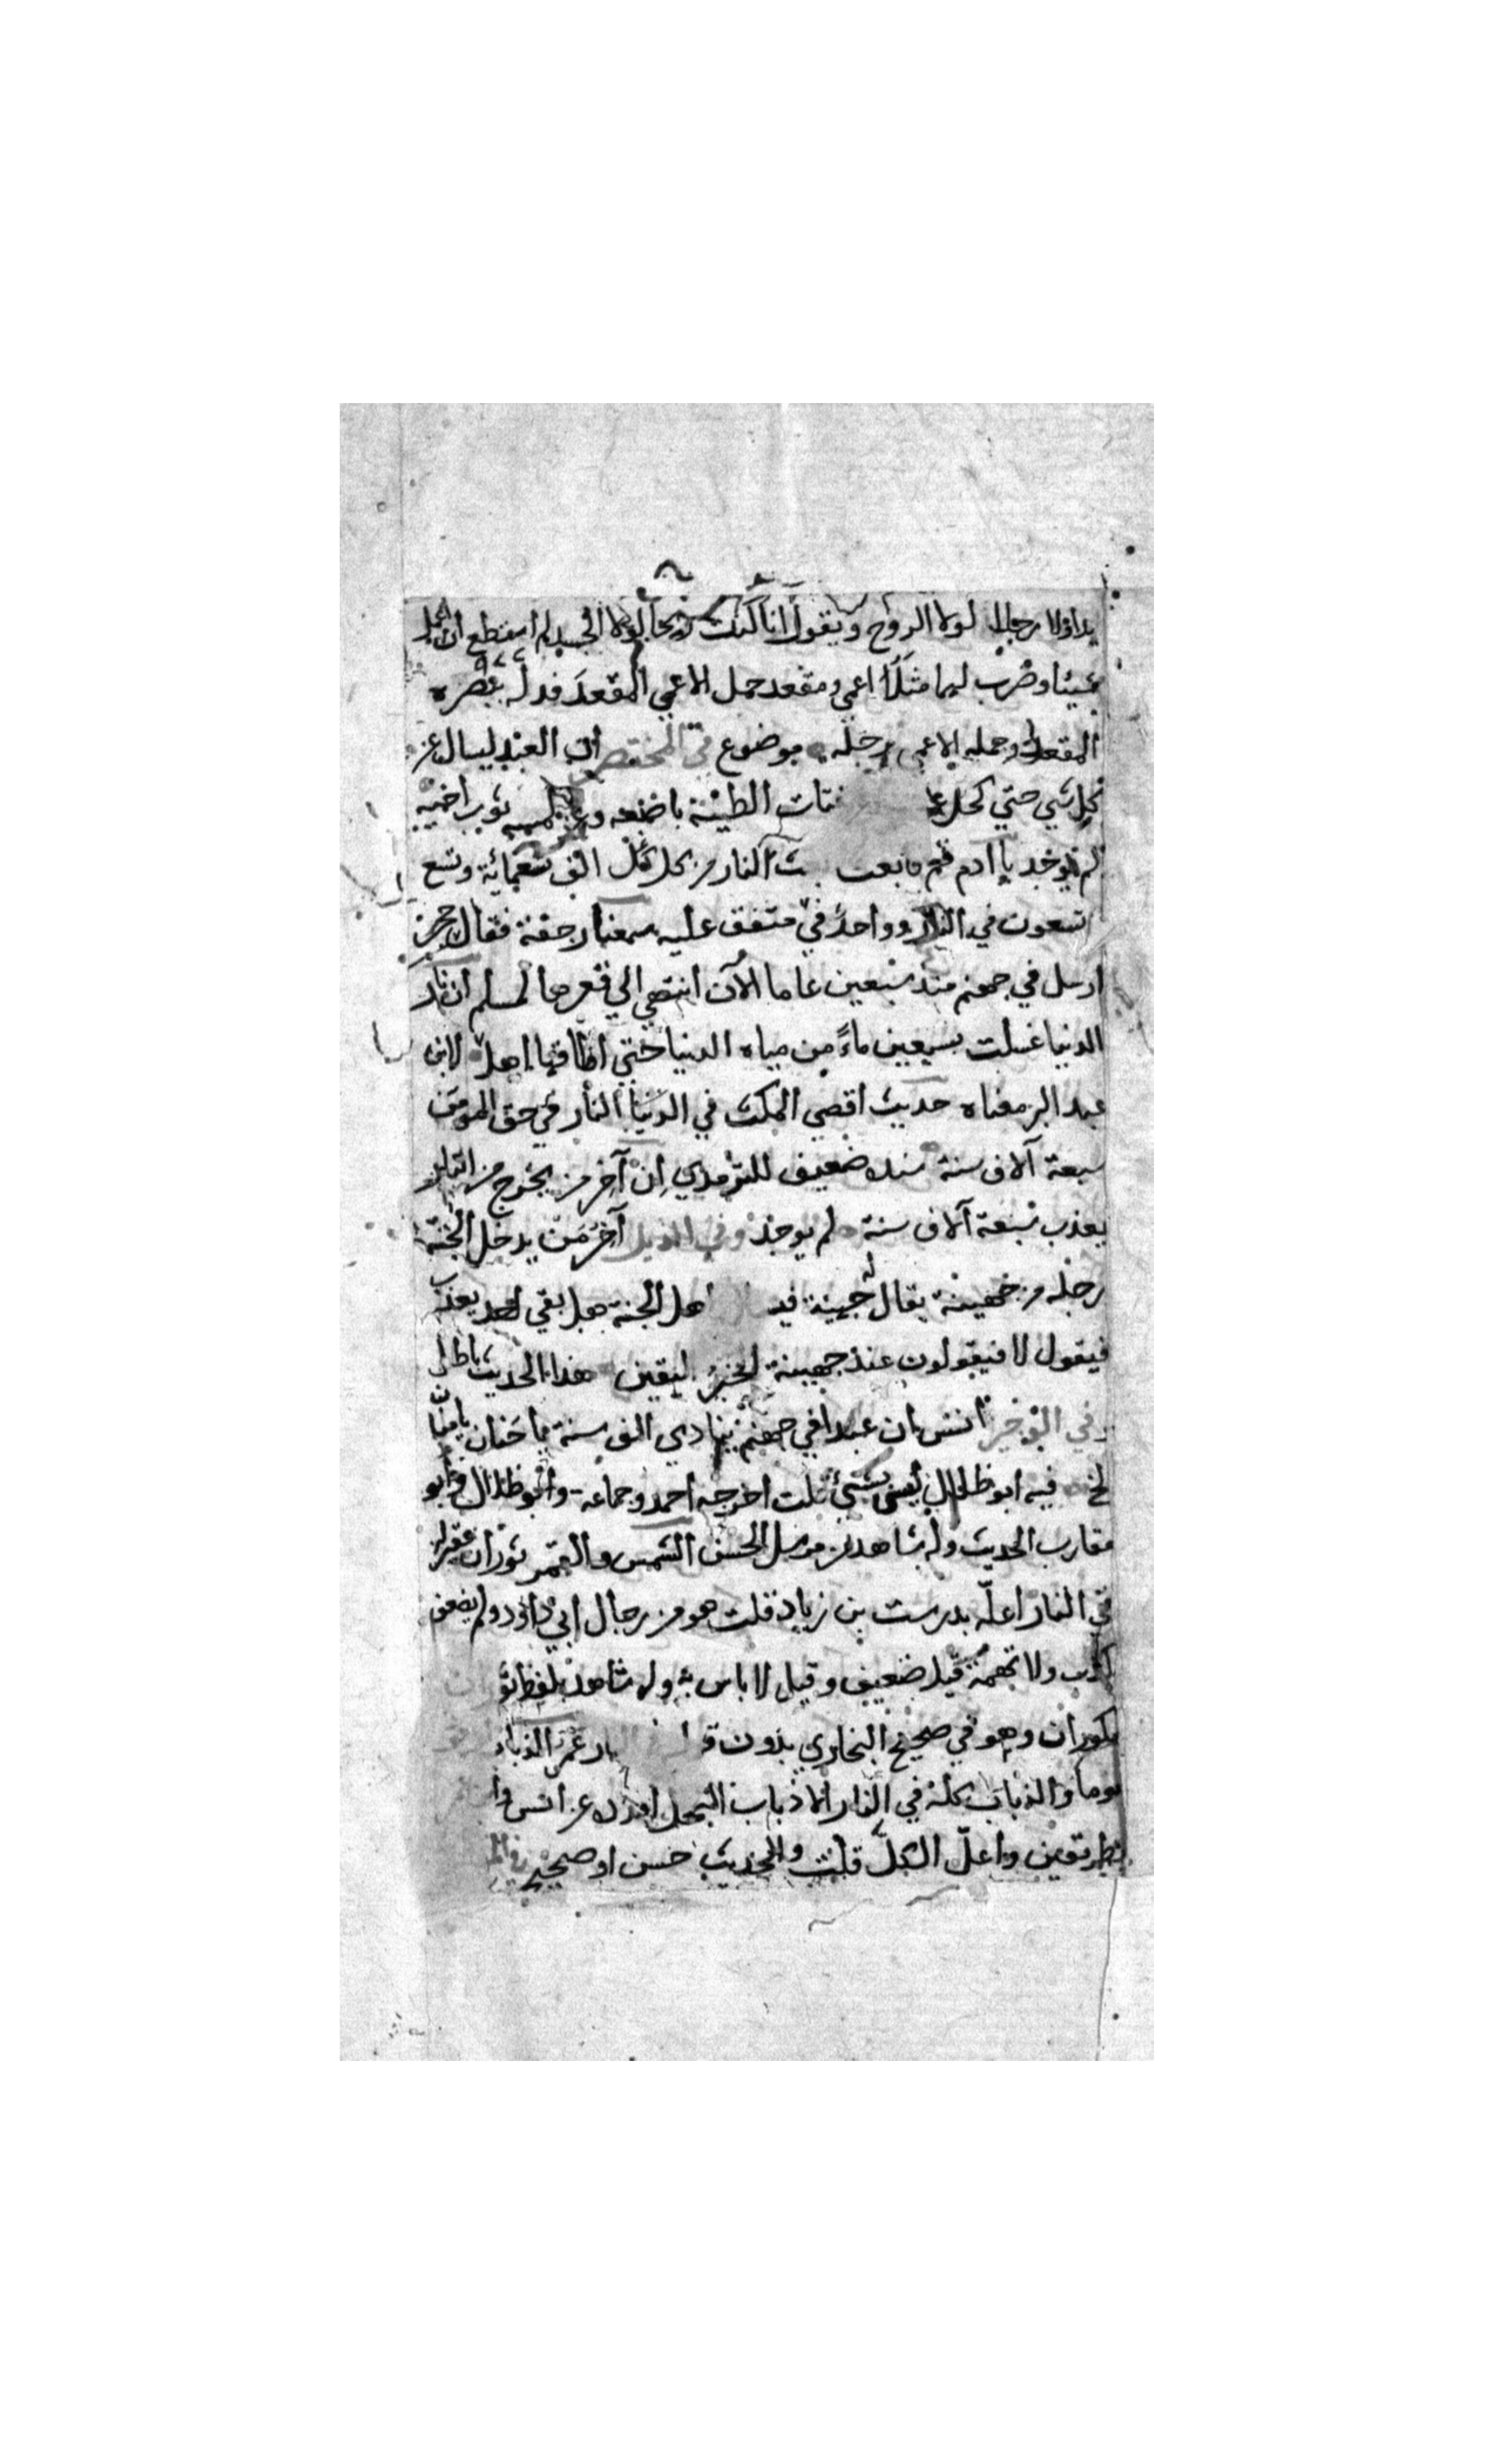 يدا ولا رجلا لولا الروح ويقول انا كنت ريحا لولا الجسد لم استطع ان اعمل
شيئا وضرب لهما مثلا اعمي ومقعد حمل الاعمي المقعد فدله ببصره
المقعد وحمله الاعمى برجله موضوع في المختصر ان العبد ليسال عن
كل شي حتي كحل عينيه وعن فتات الطينة باصبعه وعن لمسه ثوب اخيه
لم يوجد يا ادم قم فابعث بعث النار من كل الف تسعمائة وتسع
تسعون في النار وواحد في متفق عليه سمعنا رجفة فقال حجر
ارسل في جهنم منذ سبعين عاما الآن انتهي الي قعرها لمسلم ان نار
الدنيا غسلت بسبعين ماءً من مياه الدنيا حتي اطاقها اهلا لابن
عبد البر معناه حديث اقصي المكث في الدنيا النار في حق المومن
سبعة آلاف سنة سنده ضعيف للترمذي ان آخر من يخرج من النار
يعذب سبعة آلاف سنة لم يوجد وفي الذيل آخر من يدخل الجنة
رجل من جهينة يقال له جهينة فيسال اهل الجنة هل بقي احد يعذب
فيقول لا فيقولون عند جهينة الخبر اليقين هذا الحديث باطل
وفي الوجيز انس ان عبدا في جهنم ينادي الف سنة يا حنان يا منان
الخ فيه ابو ظلال ليس بشئ قلت اخرجه احمد وجماعة وابو ظلال
مقارب الحديث وله شاهد من مرسل الحسن الشمس والقمر ثوران عقيران
في النار اعله بدرست بن زياد قلت هو من رجال ابي داؤد ولم يضعف
بكذب ولا تهمة قيل ضعيف وقيل لا باس به وله شاهد بلفظ ثوران
مكوران وهو في صحيح البخاري بدون عمر الذباب
يوما والذباب كله في النار الا ذباب النحل اورده عن انس
بطريقين واعل الكل قلت والحديث حسن او صحيح